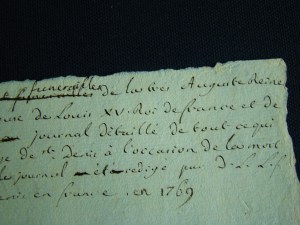 funerailles
de la tres Auguste Reine
de Louis XV. Roi de france et de
journal détaillé de tout ce qui
de st. Denis à l'occasion de la mort
journal a été redigé par D.
en france . en 1769